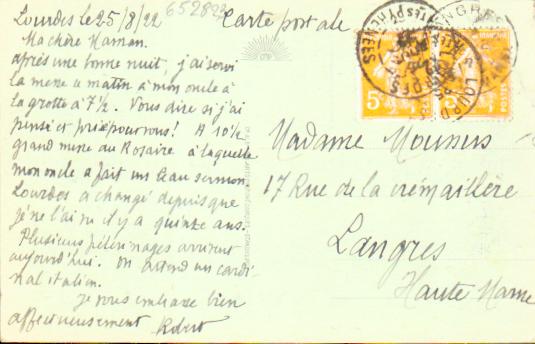 Lourdes le 25/8/22
652892
Carte postale
Ma chère Maman.
Après une bonne nuit, j'ai servi
la messe ce matin à mon oncle à
la grotte à 7½. Vous dire si j'ai
pensé et prié pour vous! A 10½
grand messe au Rosaire à laquelle
mon oncle a fait un beau sermon.
Lourdes a changé depuis que
je ne l'ai vu il y a quinze ans.
Plusieurs pélerinages arrivent
aujourd'hui. On attend un cardi-
nal italien.
Je vous embrasse bien
affectueusement Robert
5c 5c
POSTES
LOURDES
Htes PYRENEES
Madame
17 Rue de la Crémaillère
Langres
Haute Marne